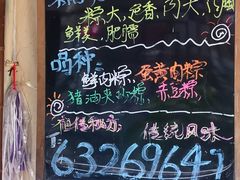 粽大,色香,肉大,
鲜美,肥糯
品种:
鲜肉粽,蛋黄肉粽
猪油夹沙粽,赤豆粽
祖传秘方 传统风味
63269647